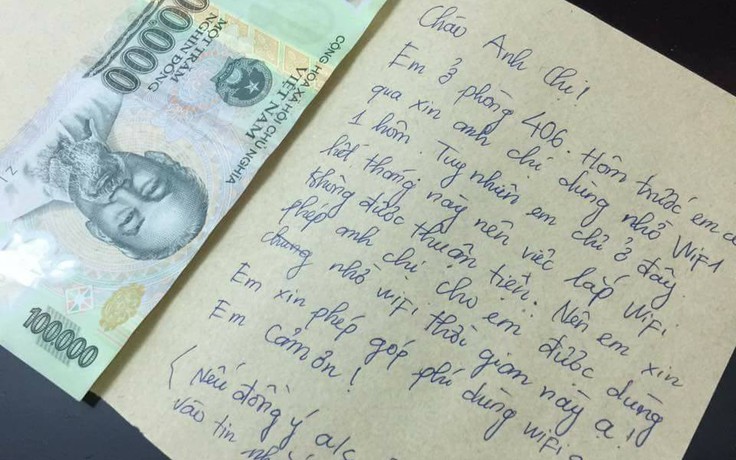 CỘNG HÒA XÃ HỘI CHỦ NGHĨA
VIỆT NAM
MỘT TRĂM
NGHÌN ĐỒNG
100000
100000
Chào Anh Chị!
Em ở phòng 406. Hôm trước em có
qua xin anh chị dùng nhờ WiFi
1 hôm. Tuy nhiên em chỉ ở đây
hết tháng này nên việc lắp WiFi
không được thuận tiện. Nên em xin
phép anh chị cho em được dùng
chung nhờ WiFi thời gian này ạ!
Em xin phép góp phí dùng WiFi
Em cảm ơn!
(Nếu đồng ý
vào tin